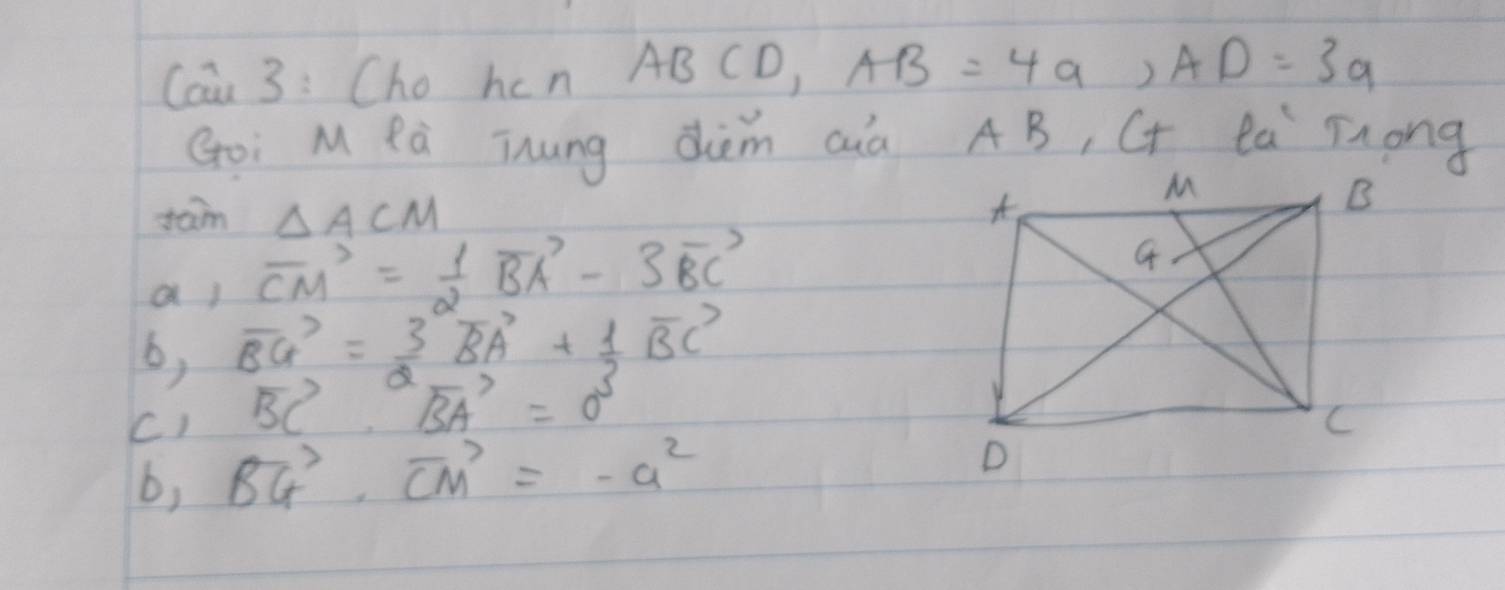 Câu 3: Cho hcn ABCD, AB = 4a, AD = 3a
Gọi M là trung điểm của AB, G là trọng
tâm △ACM
a, \overrightarrow{CM} = \frac{1}{2} \overrightarrow{BA} - 3\overrightarrow{BC}
b, \overrightarrow{BG} = \frac{3}{2} \overrightarrow{BA} + \frac{1}{3} \overrightarrow{BC}
c, \overrightarrow{BC} . \overrightarrow{BA} = 0
b, \overrightarrow{BG} . \overrightarrow{CM} = -a²
A M B
G
D C